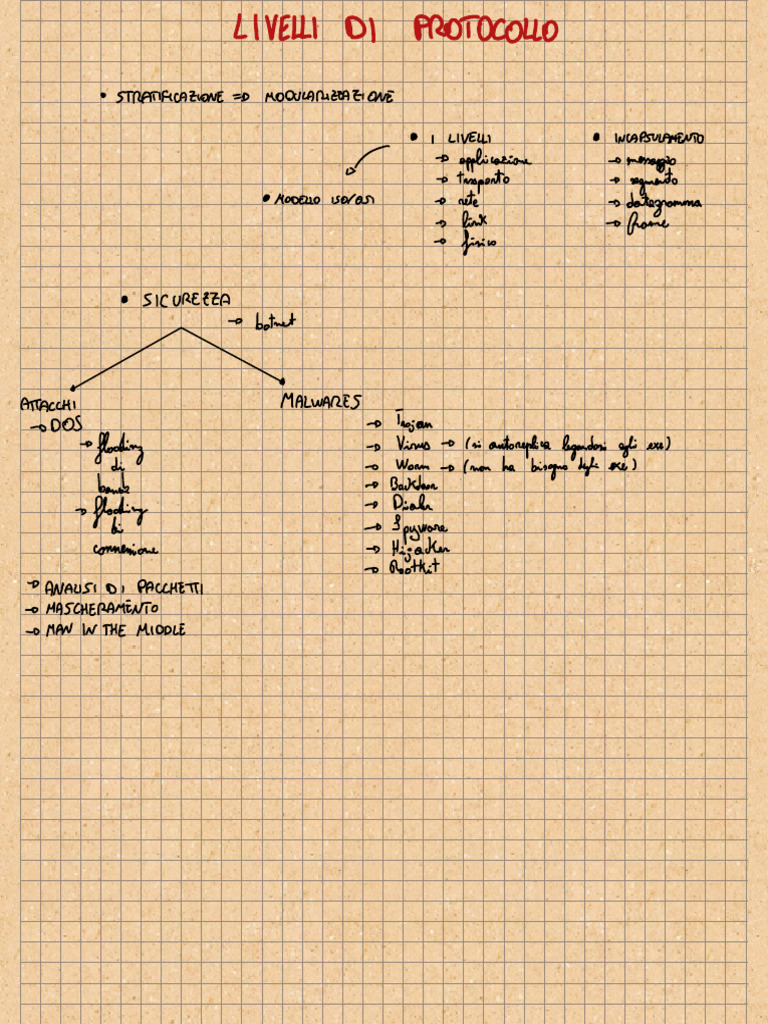 LIVELLI DI PROTOCOLLO
• STRATIFICAZIONE => MODULARIZZAZIONE
• I LIVELLI
→ applicazione
→ trasporto
→ rete
→ link
→ fisico
• INCAPSULAMENTO
→ messaggio
→ segmento
→ datagramma
→ frame
• MODELLO ISO/OSI
• SICUREZZA
→ botnet
ATTACCHI
→ DOS
→ flooding
di
banda
→ flooding
di
connessione
→ ANALISI DI PACCHETTI
→ MASCHERAMENTO
→ MAN IN THE MIDDLE
MALWARES
→ Trojan
→ Virus → (si autoreplica legandosi agli exe)
→ Worm → (non ha bisogno degli exe)
→ Backdoor
→ Dialer
→ Spyware
→ Higacker
→ Rootkit